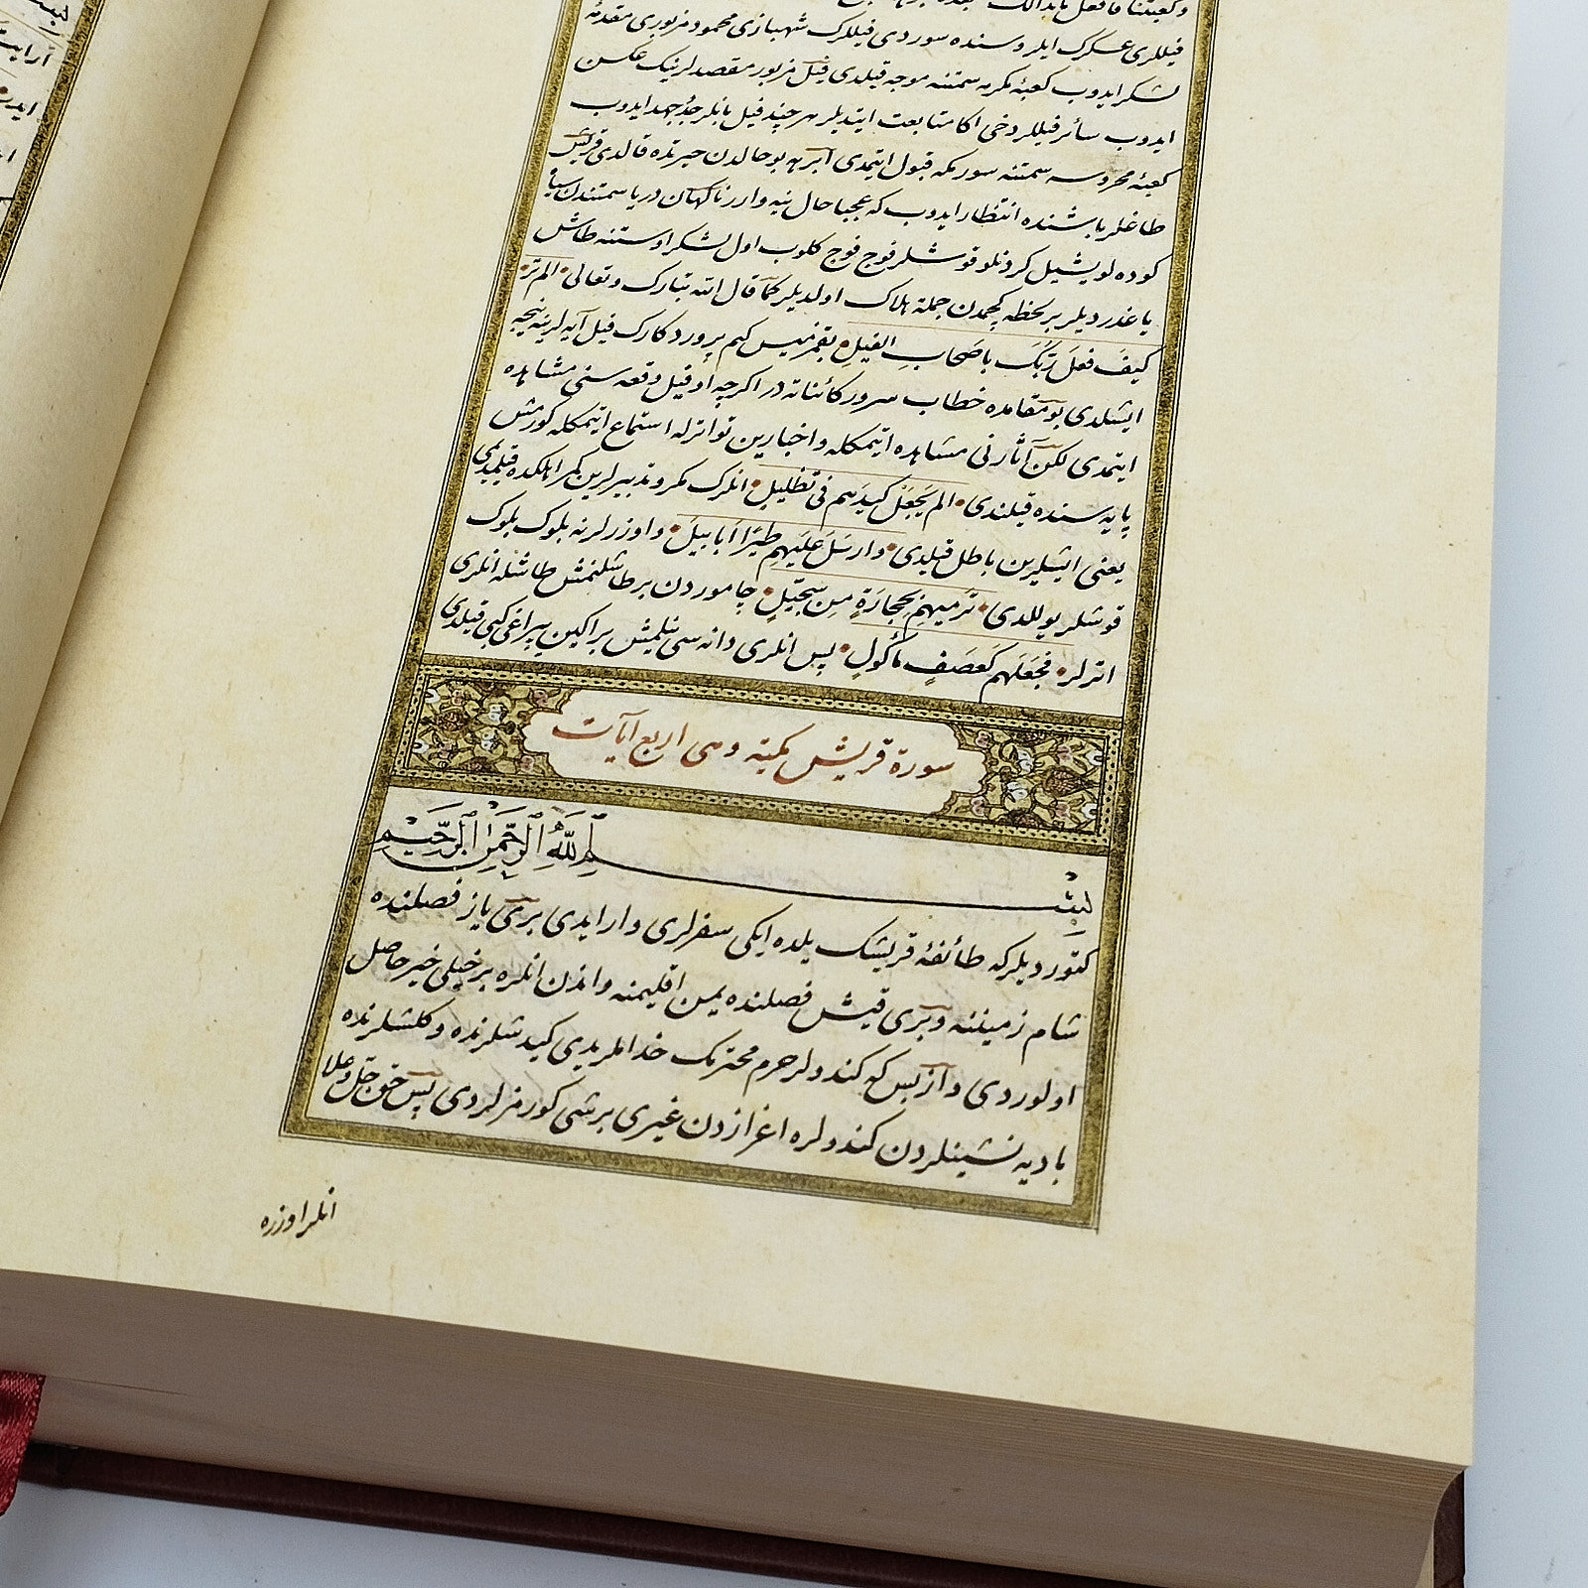 فيللری عسكرك ايلروسنده سوردی فيللرك شهبازی محمود مزبوری مقدمهٔ
لشكر ايدوب كعبهٔ مكرمه سمتنه موجه قيلدی فيل مزبور مقصدلرينك عكسن
ايدوب سائر فيللر دخی اكا متابعت ايتديلر هر چند فيلبانلر جدّ و جهد ايدوب
كعبهٔ محروسه سمتنه سورمكه قبول ايتمدی ابرهه بو حالدن حيرتده قالدی قريش
طاغلر باشنده انتظار ايدوب كه عجبا حال نيه وارر ناكهان دريا سمتندن سياه
كوده لو يشيل كردنلو قوشلر فوج فوج كلوب اول لشكر اوستنه طاش
ياغدرديلر بر لحظه كچمدن جمله هلاك اولديلر كما قال الله تبارك وتعالی الم تر
كيف فعل ربّك باصحاب الفيل بقمزميسن كم پروردكارك فيل آيه لرينه نيجه
ايشلدی بو مقامده خطاب سرور كائناته در اكرچه او فيل وقعه سنی مشاهده
ايتمدی لكن آثارنی مشاهده ايتمكله و اخبارين تواترله استماع ايتمكله كورمش
پايه سنده قيلندی الم يجعل كيدهم فی تظليل انلرك مكر و تدبيرلرين كمراهلكده قيلمدی
يعنی ايشلرين باطل قيلدی وارسل عليهم طيرا ابابيل و اوزرلرنه بلوك بلوك
قوشلر يوللدی ترميهم بحجارة من سجّيل چاموردن برطاشلنمش طاشله انلری
اترلر فجعلهم كعصف مأكول پس انلری دانه سی ينلمش براكين يپراغی كبی قيلدی
سورة قريش مكية وهی اربع آيات
بسم الله الرحمن الرحيم
كتورديلركه طائفهٔ قريشك يلده ايكی سفرلری وار ايدی بری ياز فصلنده
شام زميننه و بری قيش فصلنده يمن اقليمنه و اندن انلره بر خيلی خير حاصل
اولوردی و از بس كه كندولر حرم محترمك خداملريدی كيدشلرنده و كلشلرنده
باديه نشينلردن كندولره اغرازدن غيری بر شی كورمزلردی پس حق جلّ وعلا
انلر اوزره